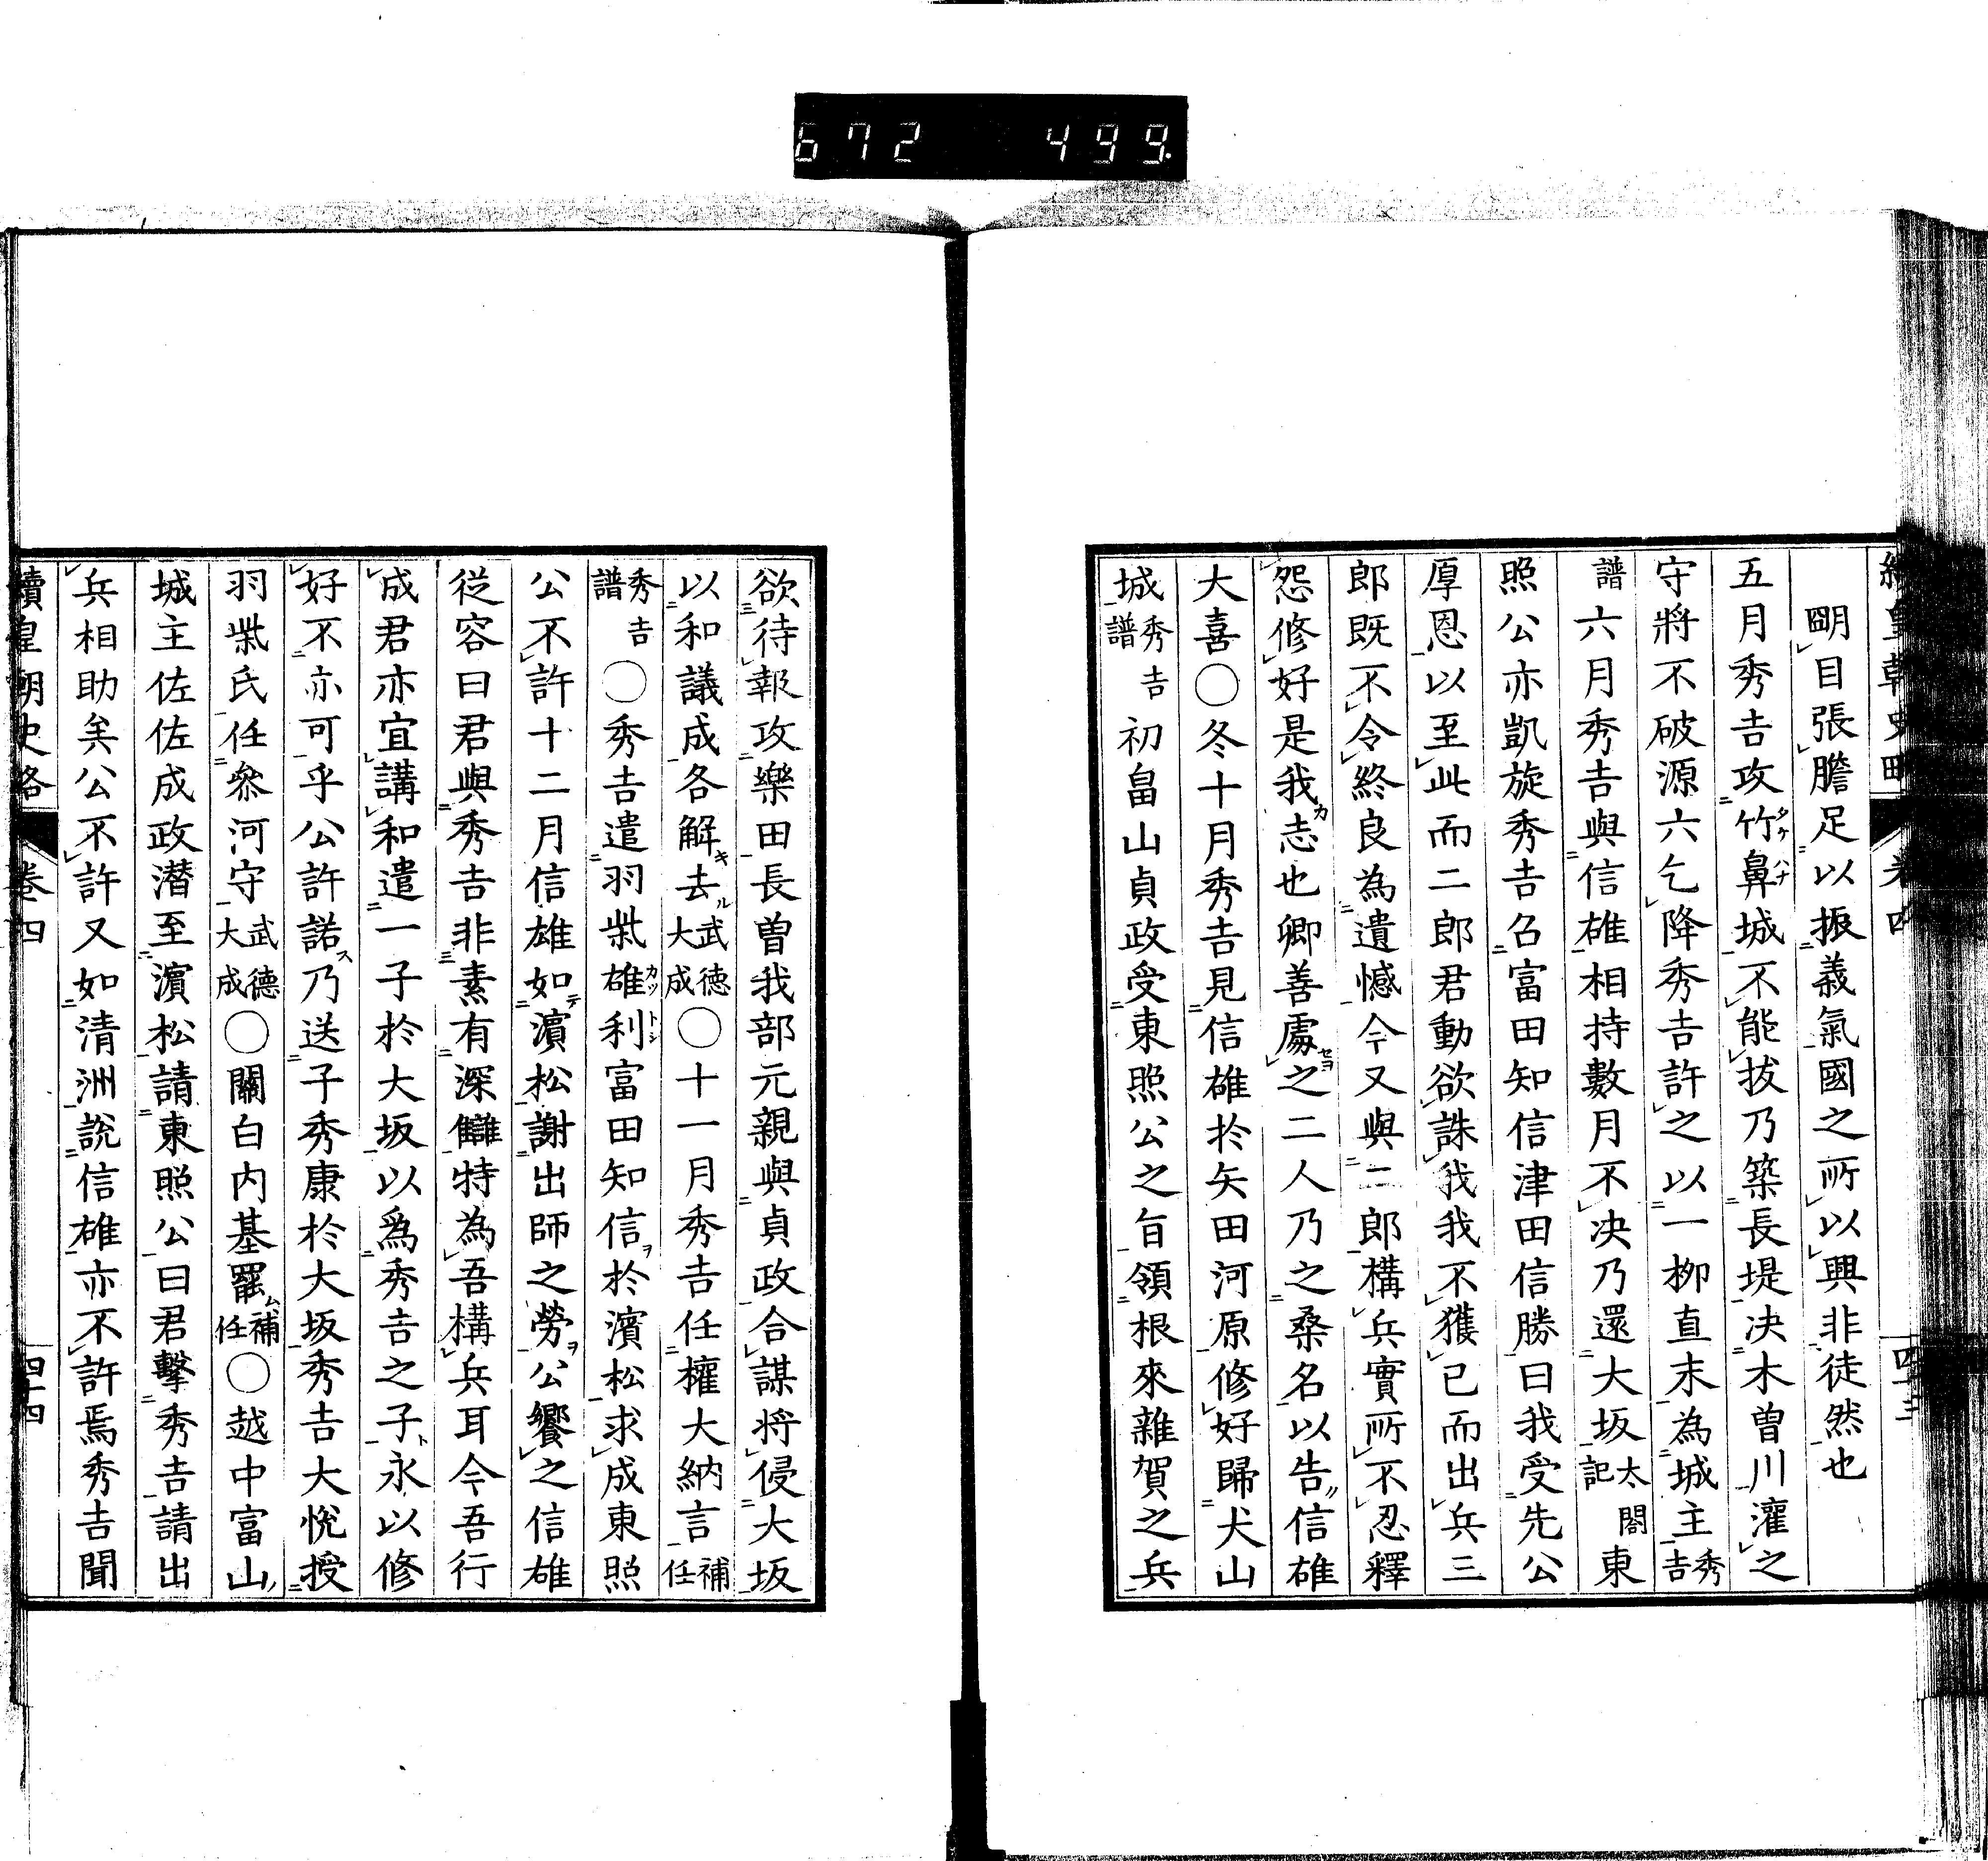 672 499.
續皇朝史略 卷四 四十三
明目張膽足以振義氣國之所以興非徒然也
五月秀吉攻竹鼻城不能拔乃築長堤决木曾川灌之
守將不破源六乞降秀吉許之以一柳直末為城主秀吉
譜六月秀吉與信雄相持數月不决乃還大坂太閤記東
照公亦凱旋秀吉召富田知信津田信勝曰我受先公
厚恩以至此而二郎君動欲誅我我不獲已而出兵三
郎既不令終良為遺憾今又與二郎構兵實所不忍釋
怨修好是我志也卿善處之二人乃之桑名以告信雄
大喜〇冬十月秀吉見信雄於矢田河原修好歸犬山
城秀吉譜初畠山貞政受東照公之旨領根來雜賀之兵
欲待報攻樂田長曽我部元親與貞政合謀将侵大坂
以和議成各解去武德大成〇十一月秀吉任權大納言補任
秀吉譜〇秀吉遣羽柴雄利富田知信於濱松求成東照
公不許十二月信雄如濱松謝出師之勞公饗之信雄
従容曰君與秀吉非素有深讎特為吾構兵耳今吾行
成君亦宜講和遣一子於大坂以爲秀吉之子永以修
好不亦可乎公許諾乃送子秀康於大坂秀吉大悅授
羽柴氏任叅河守武德大成〇關白内基罷補任〇越中富山
城主佐佐成政潜至濱松請東照公曰君擊秀吉請出
兵相助矣公不許又如清洲說信雄亦不許焉秀吉聞
續皇朝史略 卷四 四十四